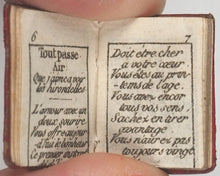 6
Tout passe
Air
Que j'aime a voir
les hirondelles
L'amour avec un
doux sourire
Vous offre aujour
d'hui le bonheur
Ce premier
7
Doit etre cher
à votre cœur
Vous êtes au prin-
tems de l'age.
Vous avez encor
tous vos sens,
Sachez en tirer
avantage
Vous n'aurez pas
toujours vingt